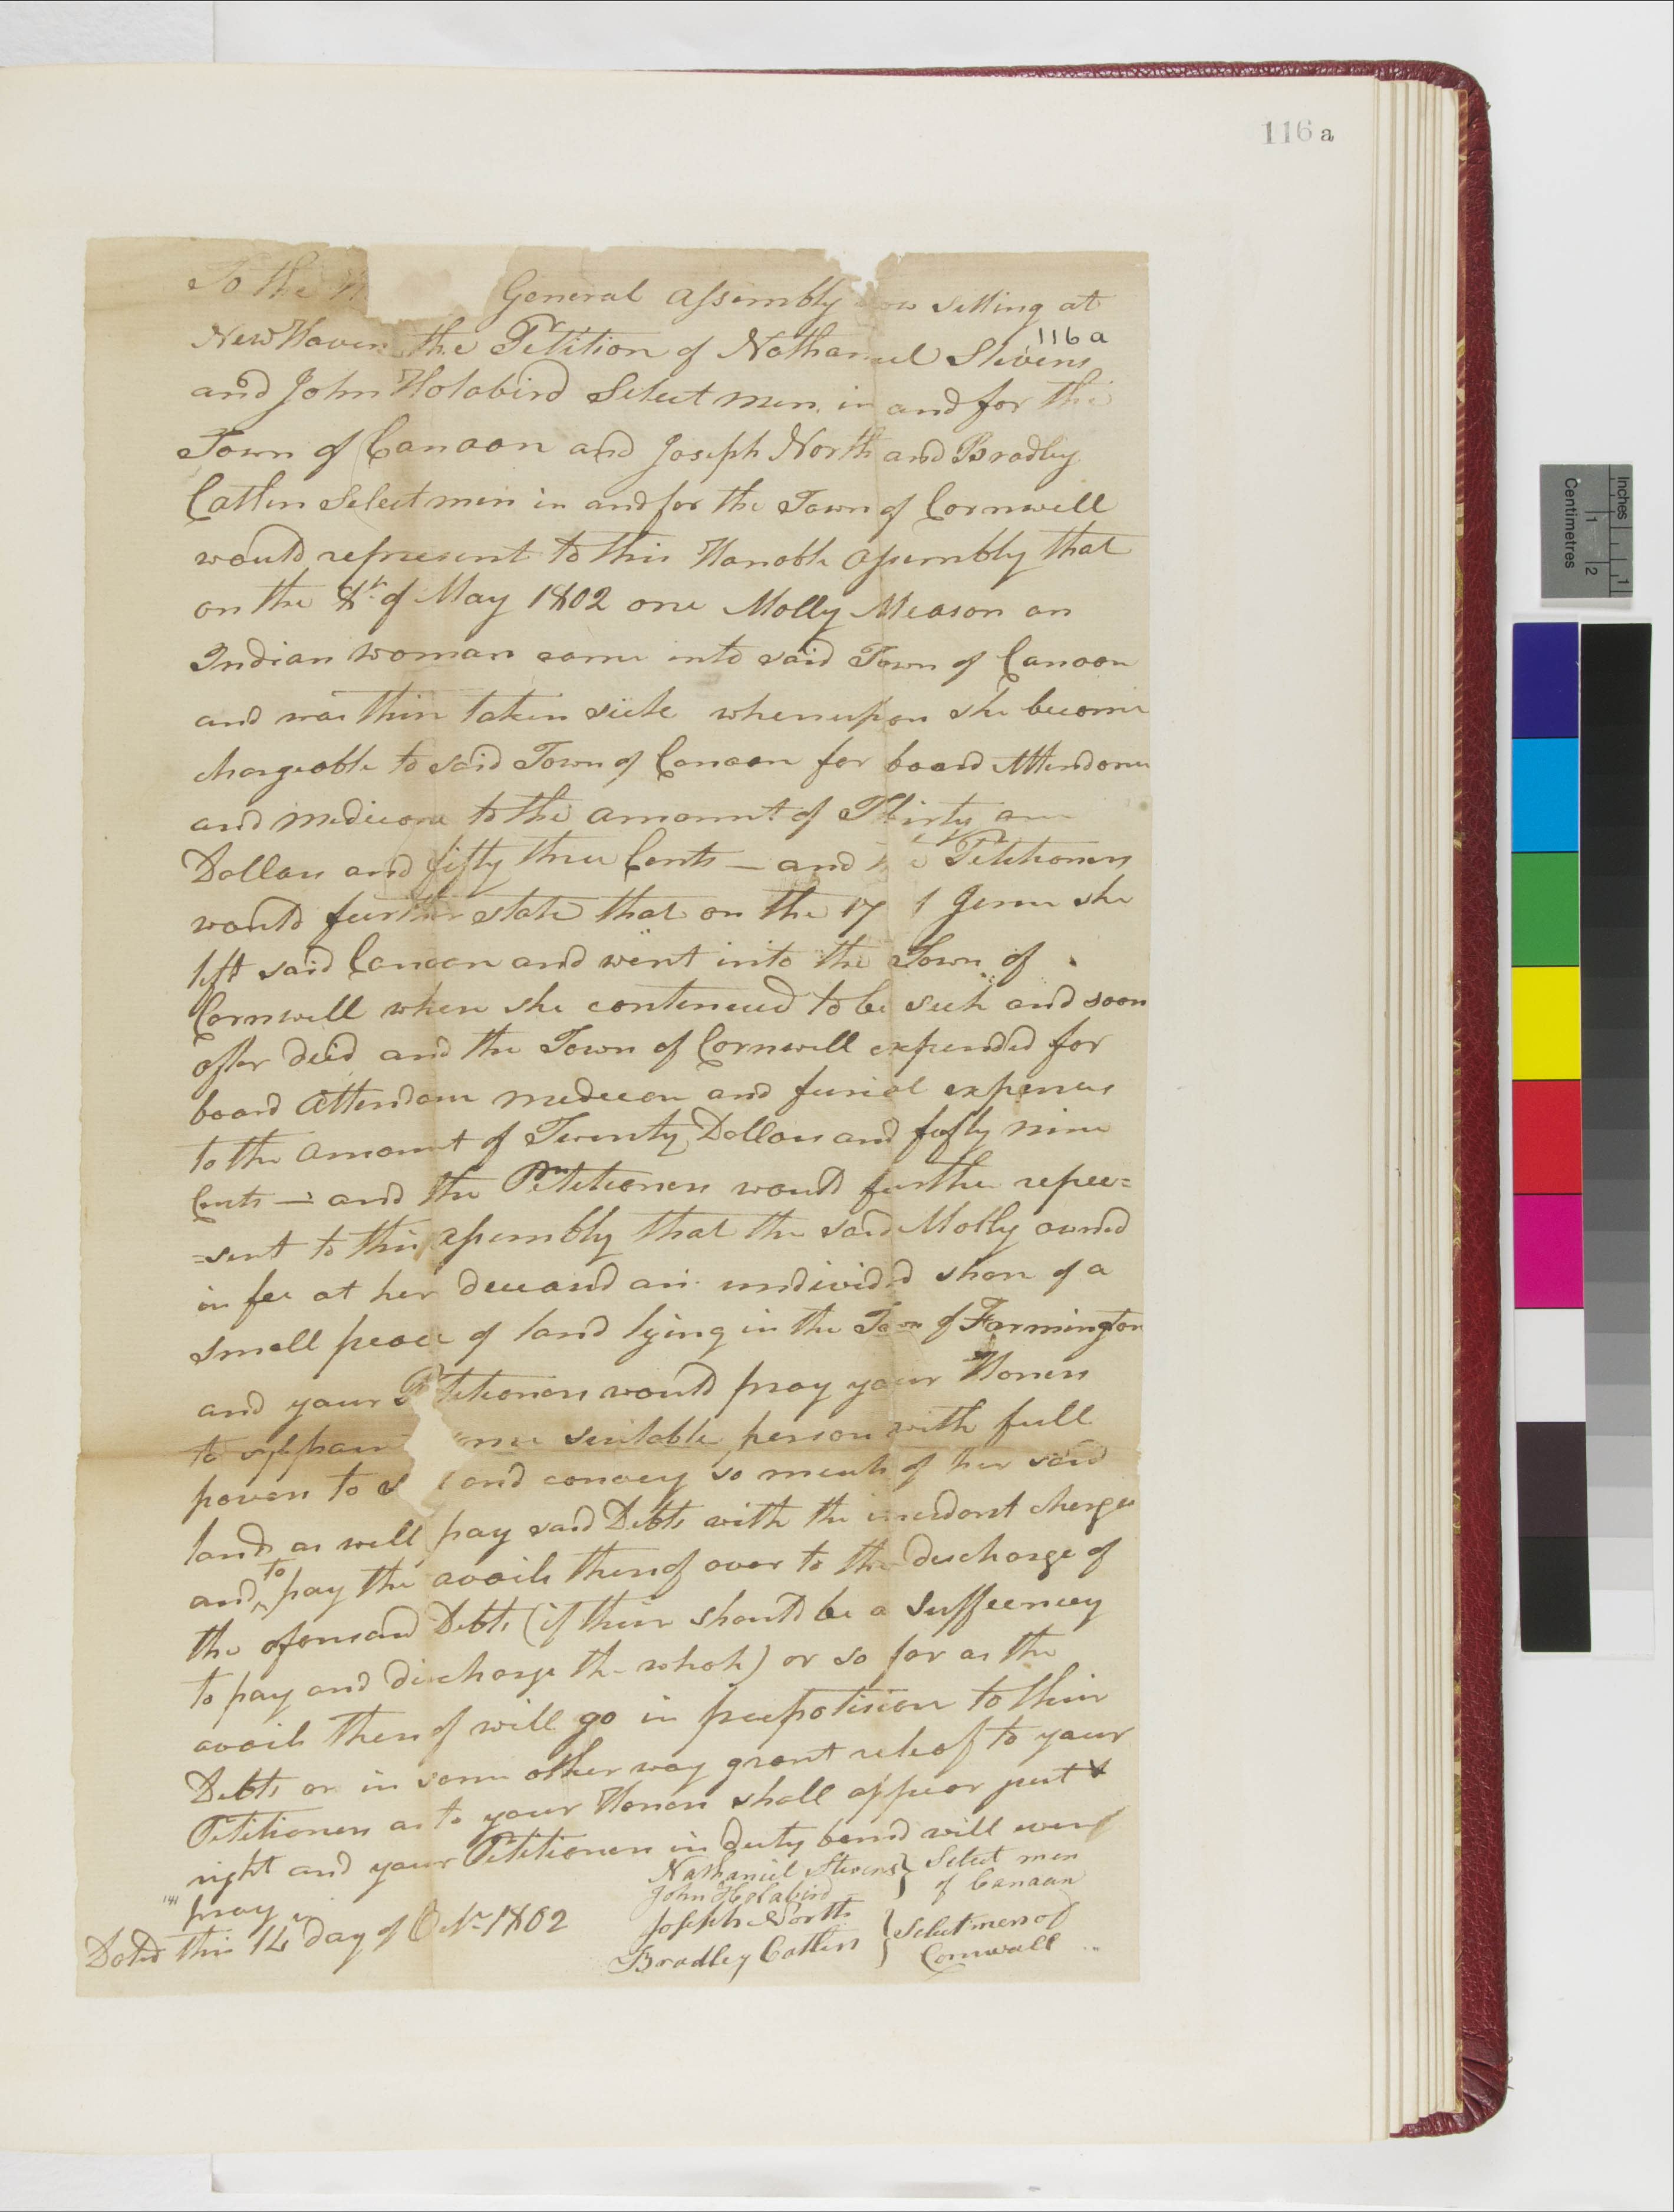 116 a
To the General Assembly now setting at
116 a
New Haven the Petition of Nathaniel Stevens
and John Holabird Select men in and for the
Town of Canaan and Joseph North and Bradley
Catlin Select men in and for the Town of Cornwell
would represent to this Honoble Assembly that
on the 8th of May 1802 one Molly Meason an
Indian woman came into said Town of Canaan
and was thin taken sick whereupon she become
chargeable to said Town of Canaan for board Attendance
and medicone to the amount of Thirty one
Dollars and fifty three Cents — and Petitioners
would further state that on the 17 June she
left said Canaan and went into the Town of
Cornwell when she conteneued to be sick and soon
after deid and the Town of Cornwell expended for
board Attendance medecon and funiral expences
to the amount of Twenty Dollars and fifty nine
Cents — and the Petitioners would further repre=
=sent to this Assembly that the said Molly owned
in fee at her deceased an undivided share of a
small peace of land lying in the Town of Farmington
and your Petitioners would pray your Honers
to suitable person with full
power to and convey so much of her said
land as well pay said Debts with the incedent charges
and to pay the avails thereof over to the discharge of
the aforesaid Debts (if their should be a suffeencey
to pay and discharge the whole) or so far as the
avails thereof will go in to their
Debts or in some other way grant releaf to your
Petitioners as to your Honers shall appear just &
right and your Petitioners in duty bound will ever
141
pray
Nathaniel Stevens } Select men
John Holabird } of Canaan
Dated this 14 day of Octr 1802
Joseph North } Select men of
Bradley Catlin } Cornwall
Inches
1
Centimetres
1
2